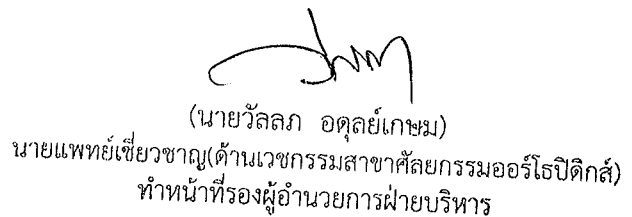 (นายวัลลภ อดุลย์เกษม)
นายแพทย์เชี่ยวชาญ(ด้านเวชกรรมสาขาศัลยกรรมออร์โธปิดิกส์)
ทำหน้าที่รองผู้อำนวยการฝ่ายบริหาร